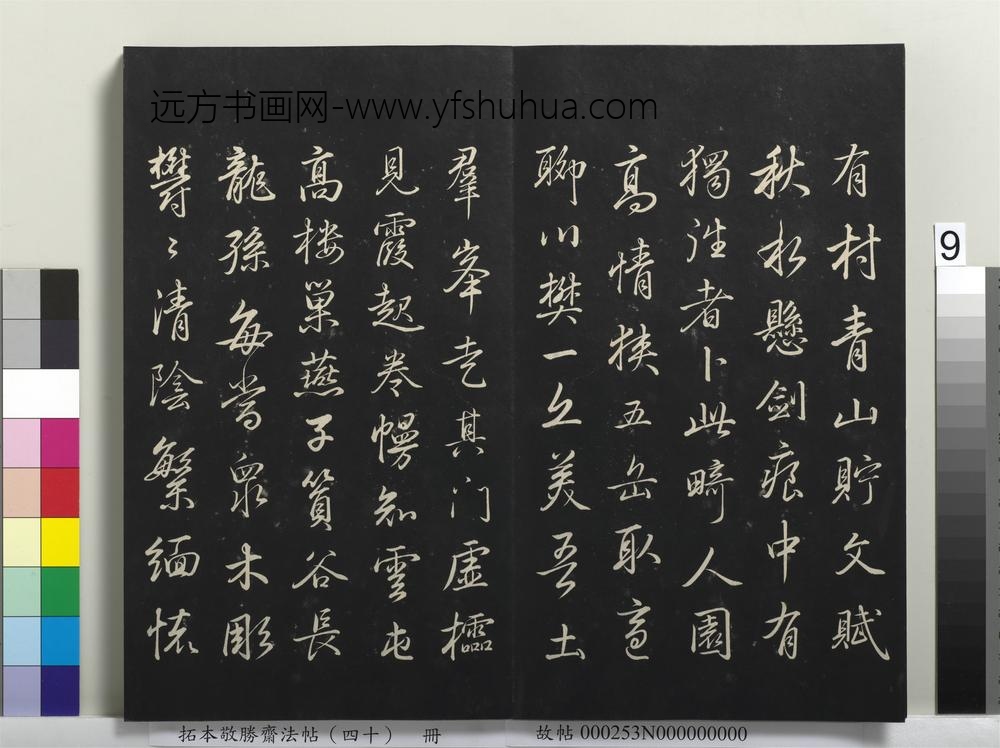 远方书画网-www.yfshuhua.com
有村青山貯文賦
秋水懸劍痕中有
獨往者卜此畸人園
高情挟五岳取適
聊以樊一丘美吾土
羣峯走其门虛櫺
見霞起卷幔知雲屯
高楼巢燕子篔谷長
龍孫每當衆木彫
欝〻清陰繁緬懐
9
拓本敬勝齋法帖（四十） 冊
故帖 000253N000000000